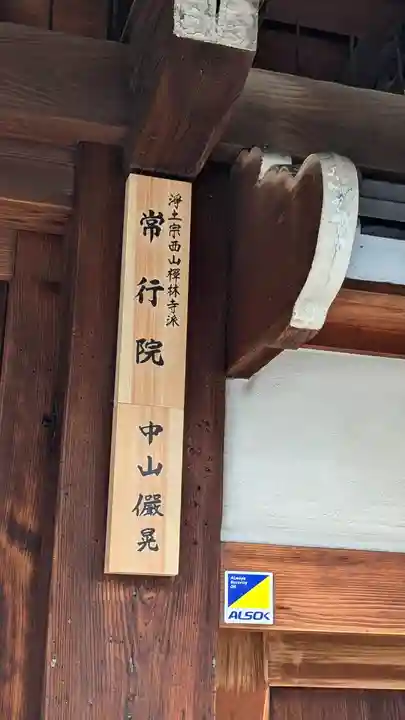 浄土宗西山禅林寺派
常行院
中山儼晃
ALways
Security
OK
ALSOK